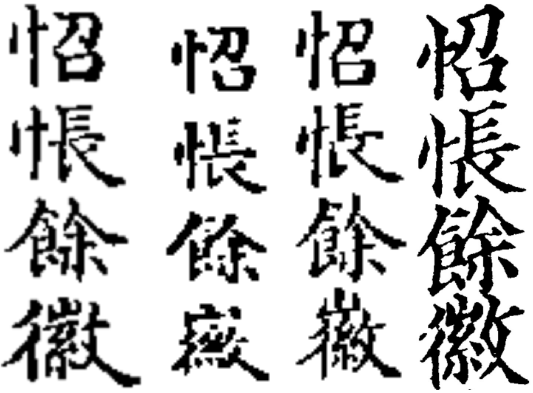 怊悵餘徽
怊悵餘徽
怊悵餘
怊悵餘徽